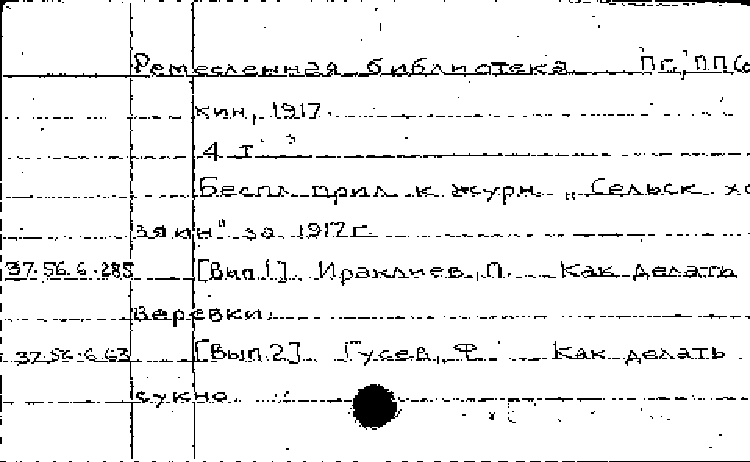 Ремесленная библиотека. Пг.,
кин, 1917.
4 т.
Беспл. прил. к журн. „Сельск. хо
зяин" за 1917 г.
37.56.6.285 [Вып.1]. Ираклиев, П. Как делать
веревки.
37.56.6.63 [Вып.2]. Гусев, Ф. Как делать
сукно.